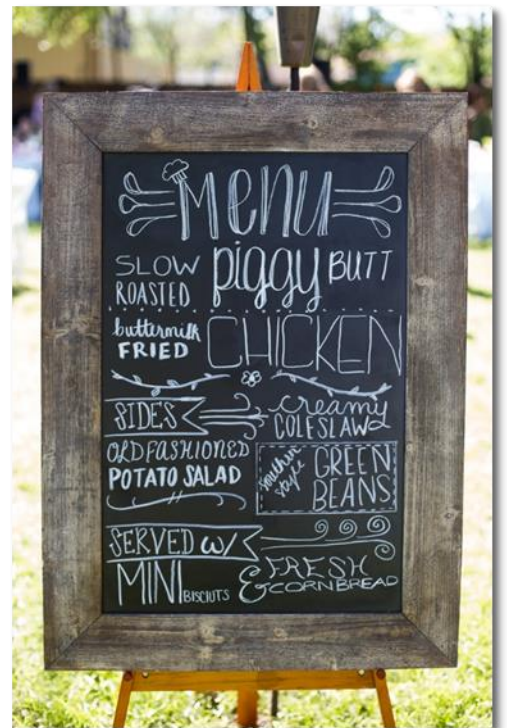 MENU
SLOW ROASTED piggy BUTT
buttermilk FRIED CHICKEN
SIDES
creamy COLESLAW
OLD FASHIONED POTATO SALAD
southern style GREEN BEANS
SERVED W/
MINI BISCIUTS
& FRESH CORNBREAD